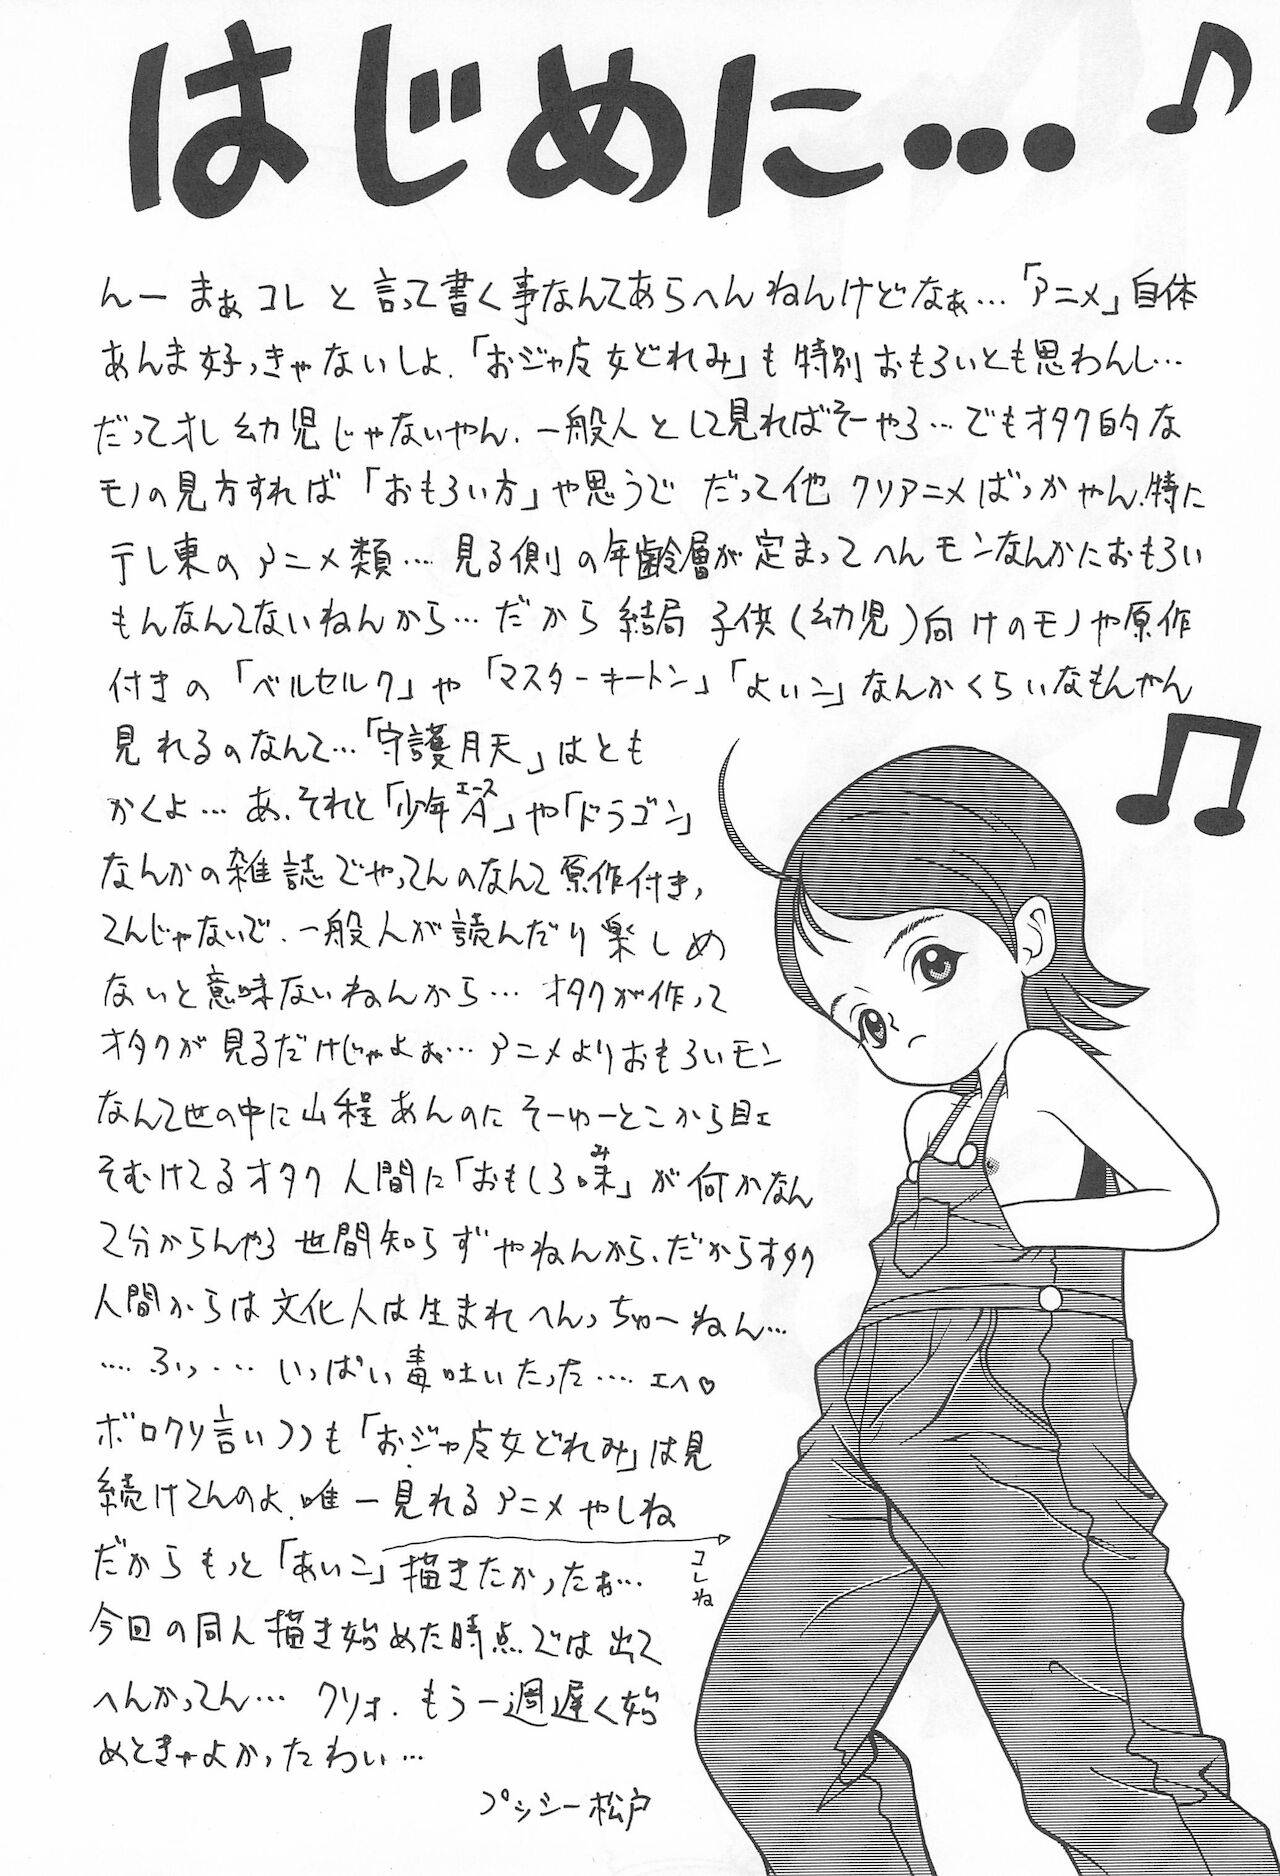 はじめに…
んー まぁ コレ と 言って書く事なんてあらへんねんけどなぁ…「アニメ」自体
あんま好っきゃないしよ.「おジャ魔女どれみ」も特別おもろいとも思わんし…
だってオレ幼児じゃないやん.一般人として見ればそーやろ…でもオタク的な
モノの見方すれば「おもろい方」や思うで だって他クソアニメばっかやん.特に
テレ東のアニメ類…見る側の年齢層が定まってへんモンなんかにおもろい
もんなんてないねんから…だから結局子供(幼児)向けのモノや原作
付きの「ベルセルク」や「マスターキートン」「よいこ」なんかくらいなもんやん
見れるのなんて…「守護月天」はとも
かくよ…あ、それと「少年A」や「ドラゴン」
エース
なんかの雑誌でやってんのなんて原作付き,
てんじゃないで.一般人が読んだり楽しめ
ないと意味ないねんから…オタクが作って
オタクが見るだけじゃよぉ…アニメよりおもろいモン
なんて世の中に山程あんのにそーゆーとこから目ェ
そむけてるオタク人間に「おもしろ味」が何かなん
み
て分からんやろ世間知らずやねんから、だからオタク
人間からは文化人は生まれへんっちゅーねん…
….ふっ….いっぱい毒吐いたった….エヘ♡
ボロクソ言いつつも「おジャ魔女どれみ」は見
続けてんのよ.唯一見れるアニメやしね
だからもっと「あいこ」描きたかったぉ…
コレね
今回の同人描き始めた時点では出て
へんかってん…クソォ.もう一週遅く始
めときゃよかったわい…
プッシー松戸